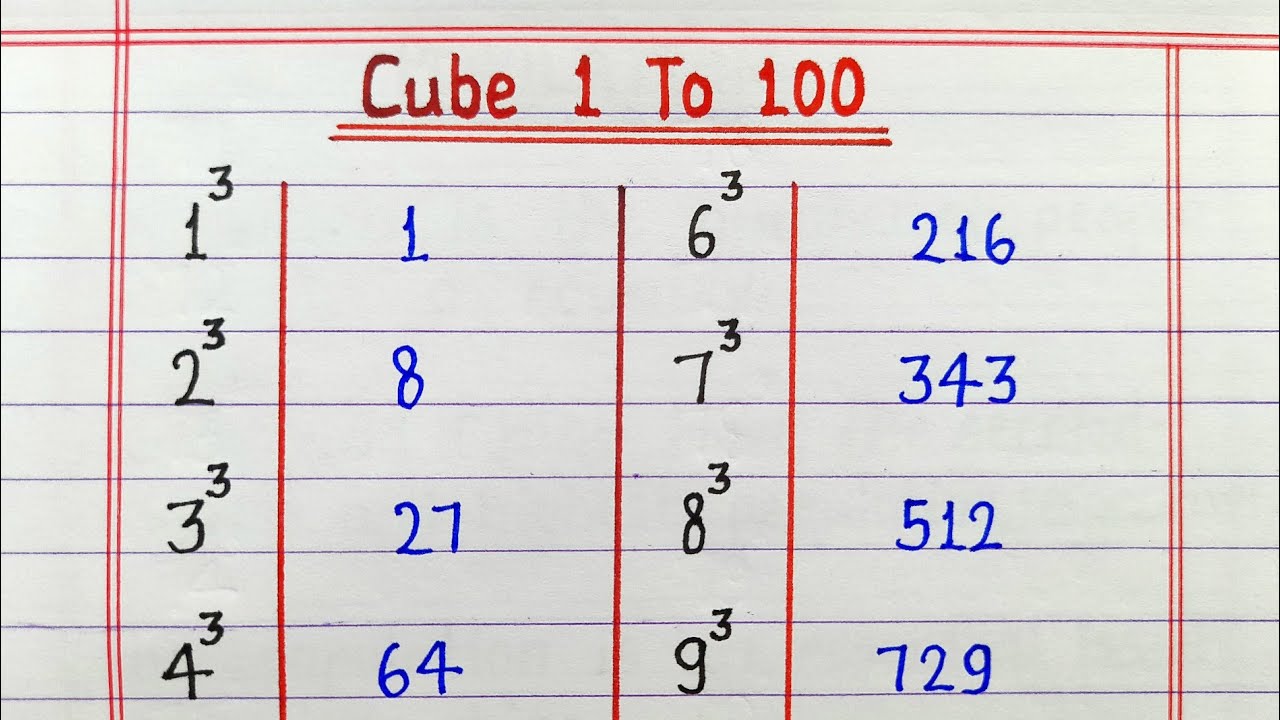 Cube 1 To 100
1³ 1 6³ 216
2³ 8 7³ 343
3³ 27 8³ 512
4³ 64 9³ 729